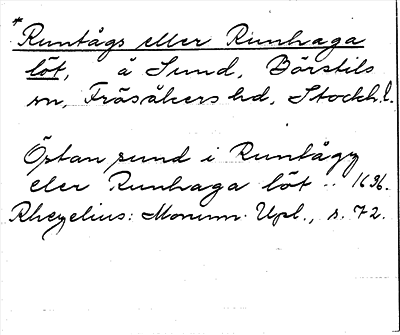 * Runtågs eller Runhaga
löt, å Sund, Börstils
sn, Fräsåkers hd, Stockh. l.
Östan sund i Runtågz
eler Runhaga löt .. 1636.
Rhezelius: Monum. Upl., s. 72.